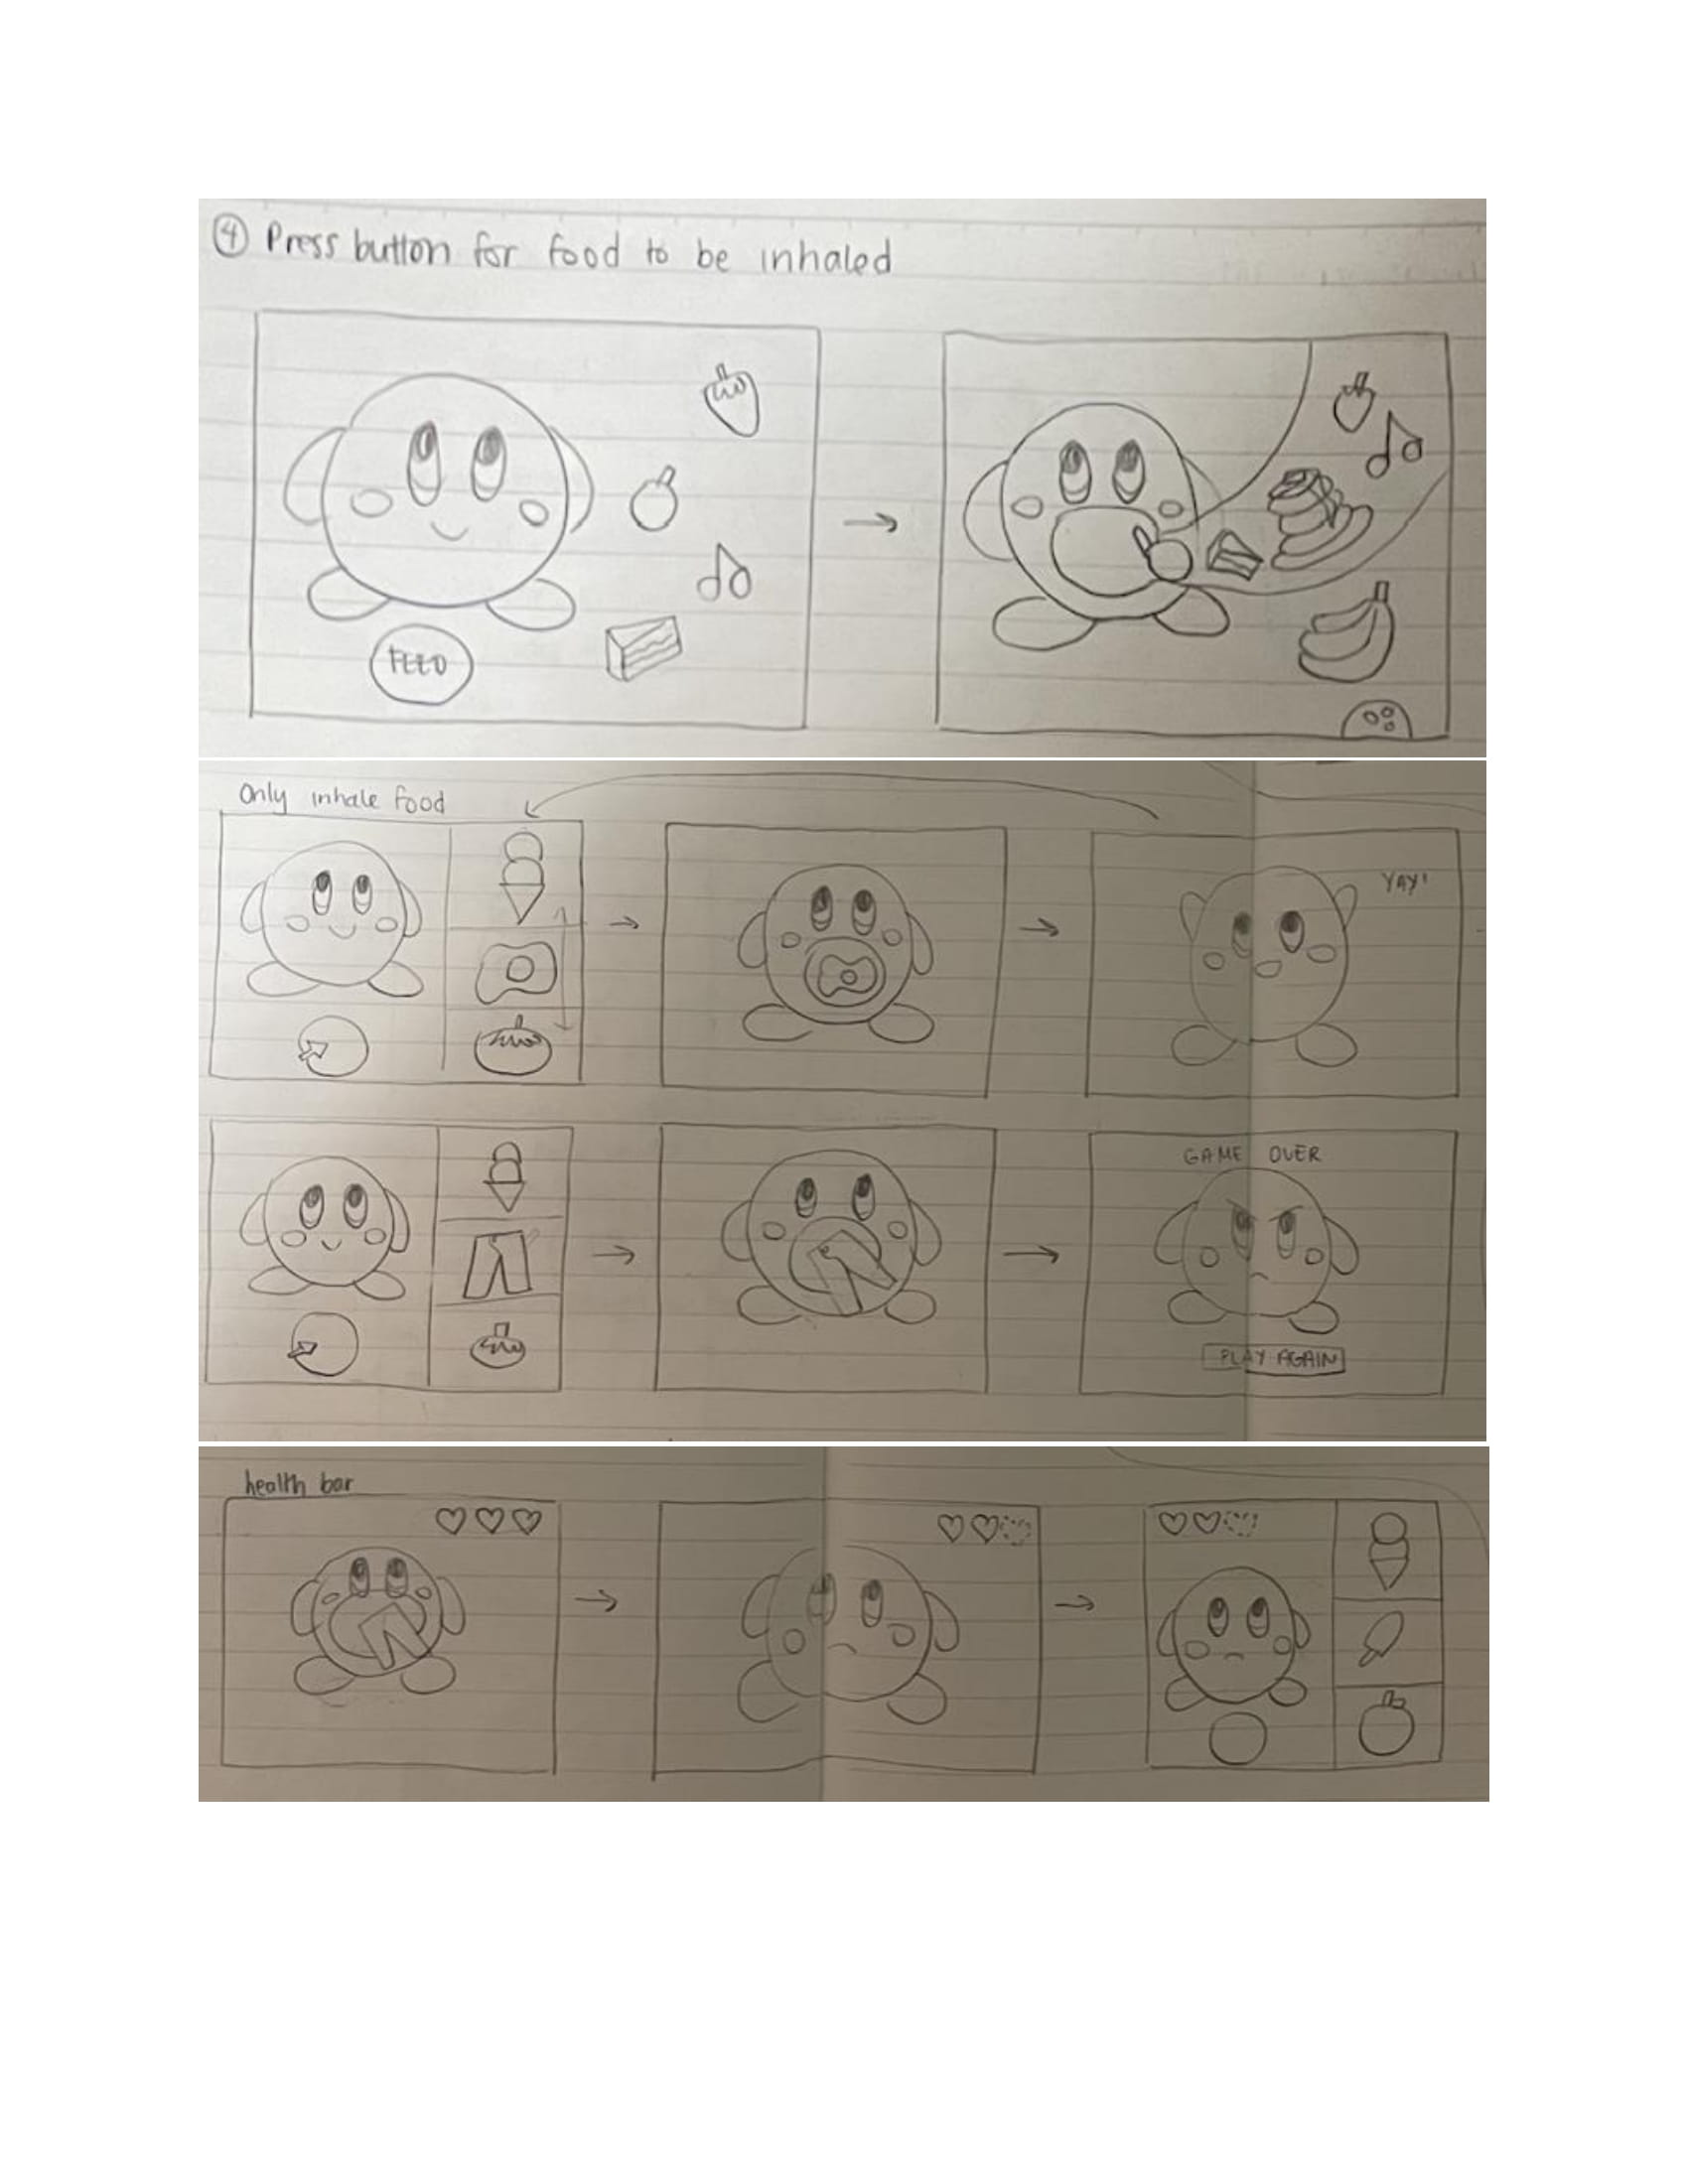 ④ Press button for food to be inhaled
FEED
Only inhale food
YAY!
GAME OVER
PLAY AGAIN
health bar